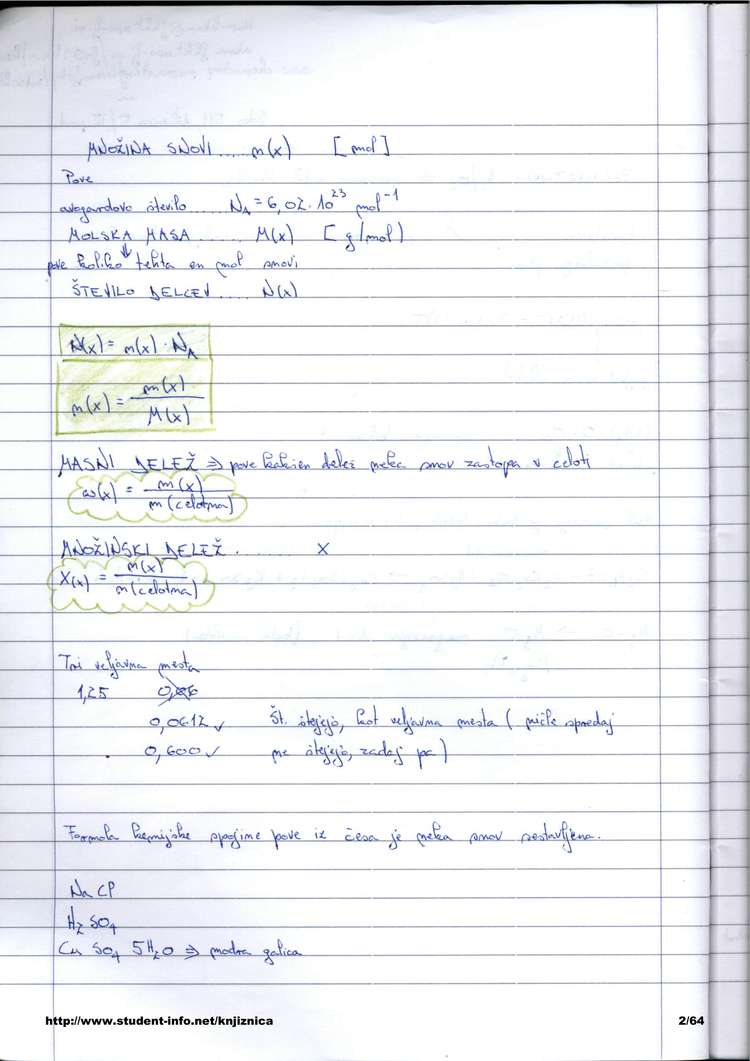 MNOŽINA SNOVI .... n(x) [mol]
Pove
avogardovo število ...... N_A = 6,02 · 10^23 mol^-1
MOLSKA MASA ....... M(x) [g/mol)
pove koliko tehta en mol snovi
ŠTEVILO DELCEV .... N(x)
N(x) = n(x) · N_A
n(x) = m(x) / M(x)
MASNI DELEŽ ⇒ pove kakšen delež neka snov zastopa v celoti
w(x) = m(x) / m(celotna)
MNOŽINSKI DELEŽ . ....... X
X(x) = n(x) / n(celotna)
Tri veljavna mesta
1,25
0,0612 ✓ Št. štejejo, kot veljavna mesta ( ničle spredaj
0,600 ✓ ne štejejo, zadaj pa )
Formula kemijske spojine pove iz česa je neka snov sestavljena.
NaCl
H2SO4
CuSO4 5H2O ⇒ modra galica
http://www.student-info.net/knjiznica 2/64